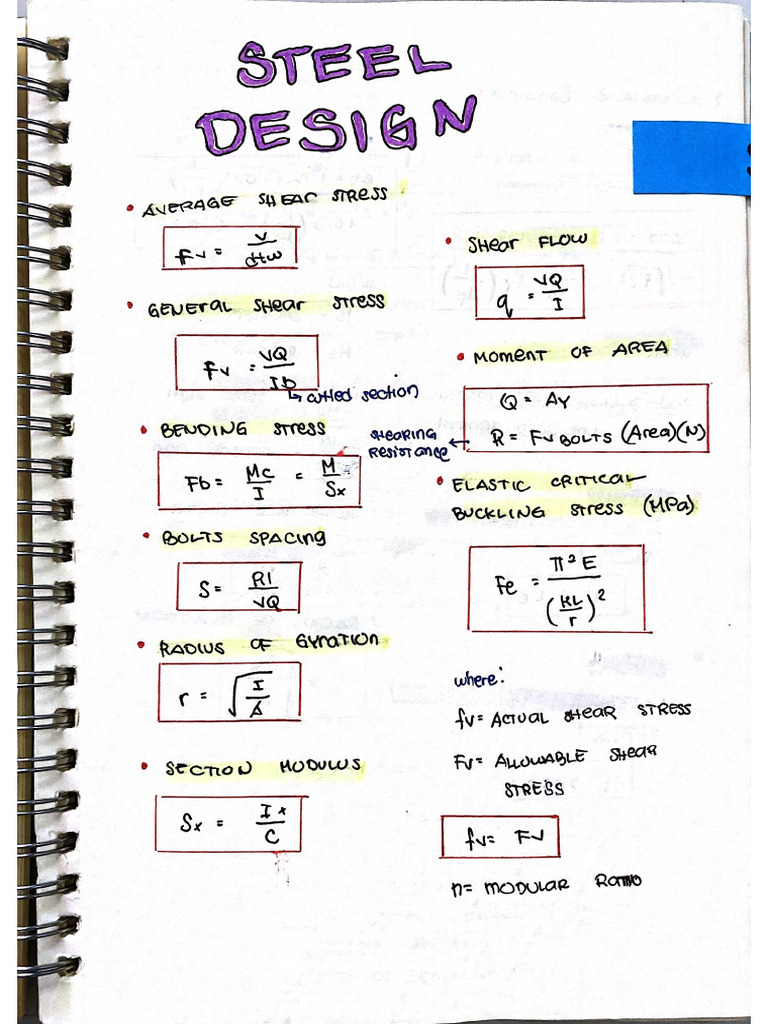 STEEL
DESIGN
• AVERAGE SHEAR STRESS
fv = V / dtw
• GENERAL SHEAR STRESS
fv = VQ / Ib
↳ cutted section
• BENDING STRESS
Fb = Mc / I = M / Sx
• BOLTS SPACING
S = RI / VQ
• RADIUS OF GYRATION
r = √(I / A)
• SECTION MODULUS
Sx = Ix / C
• SHEAR FLOW
q = VQ / I
• MOMENT OF AREA
Q = AY
SHEARING RESISTANCE ← R = FV BOLTS (Area)(N)
• ELASTIC CRITICAL
BUCKLING STRESS (MPa)
Fe = π²E / (KL / r)²
where:
fv = ACTUAL SHEAR STRESS
Fv = ALLOWABLE SHEAR
STRESS
fv = FV
n = MODULAR RATIO